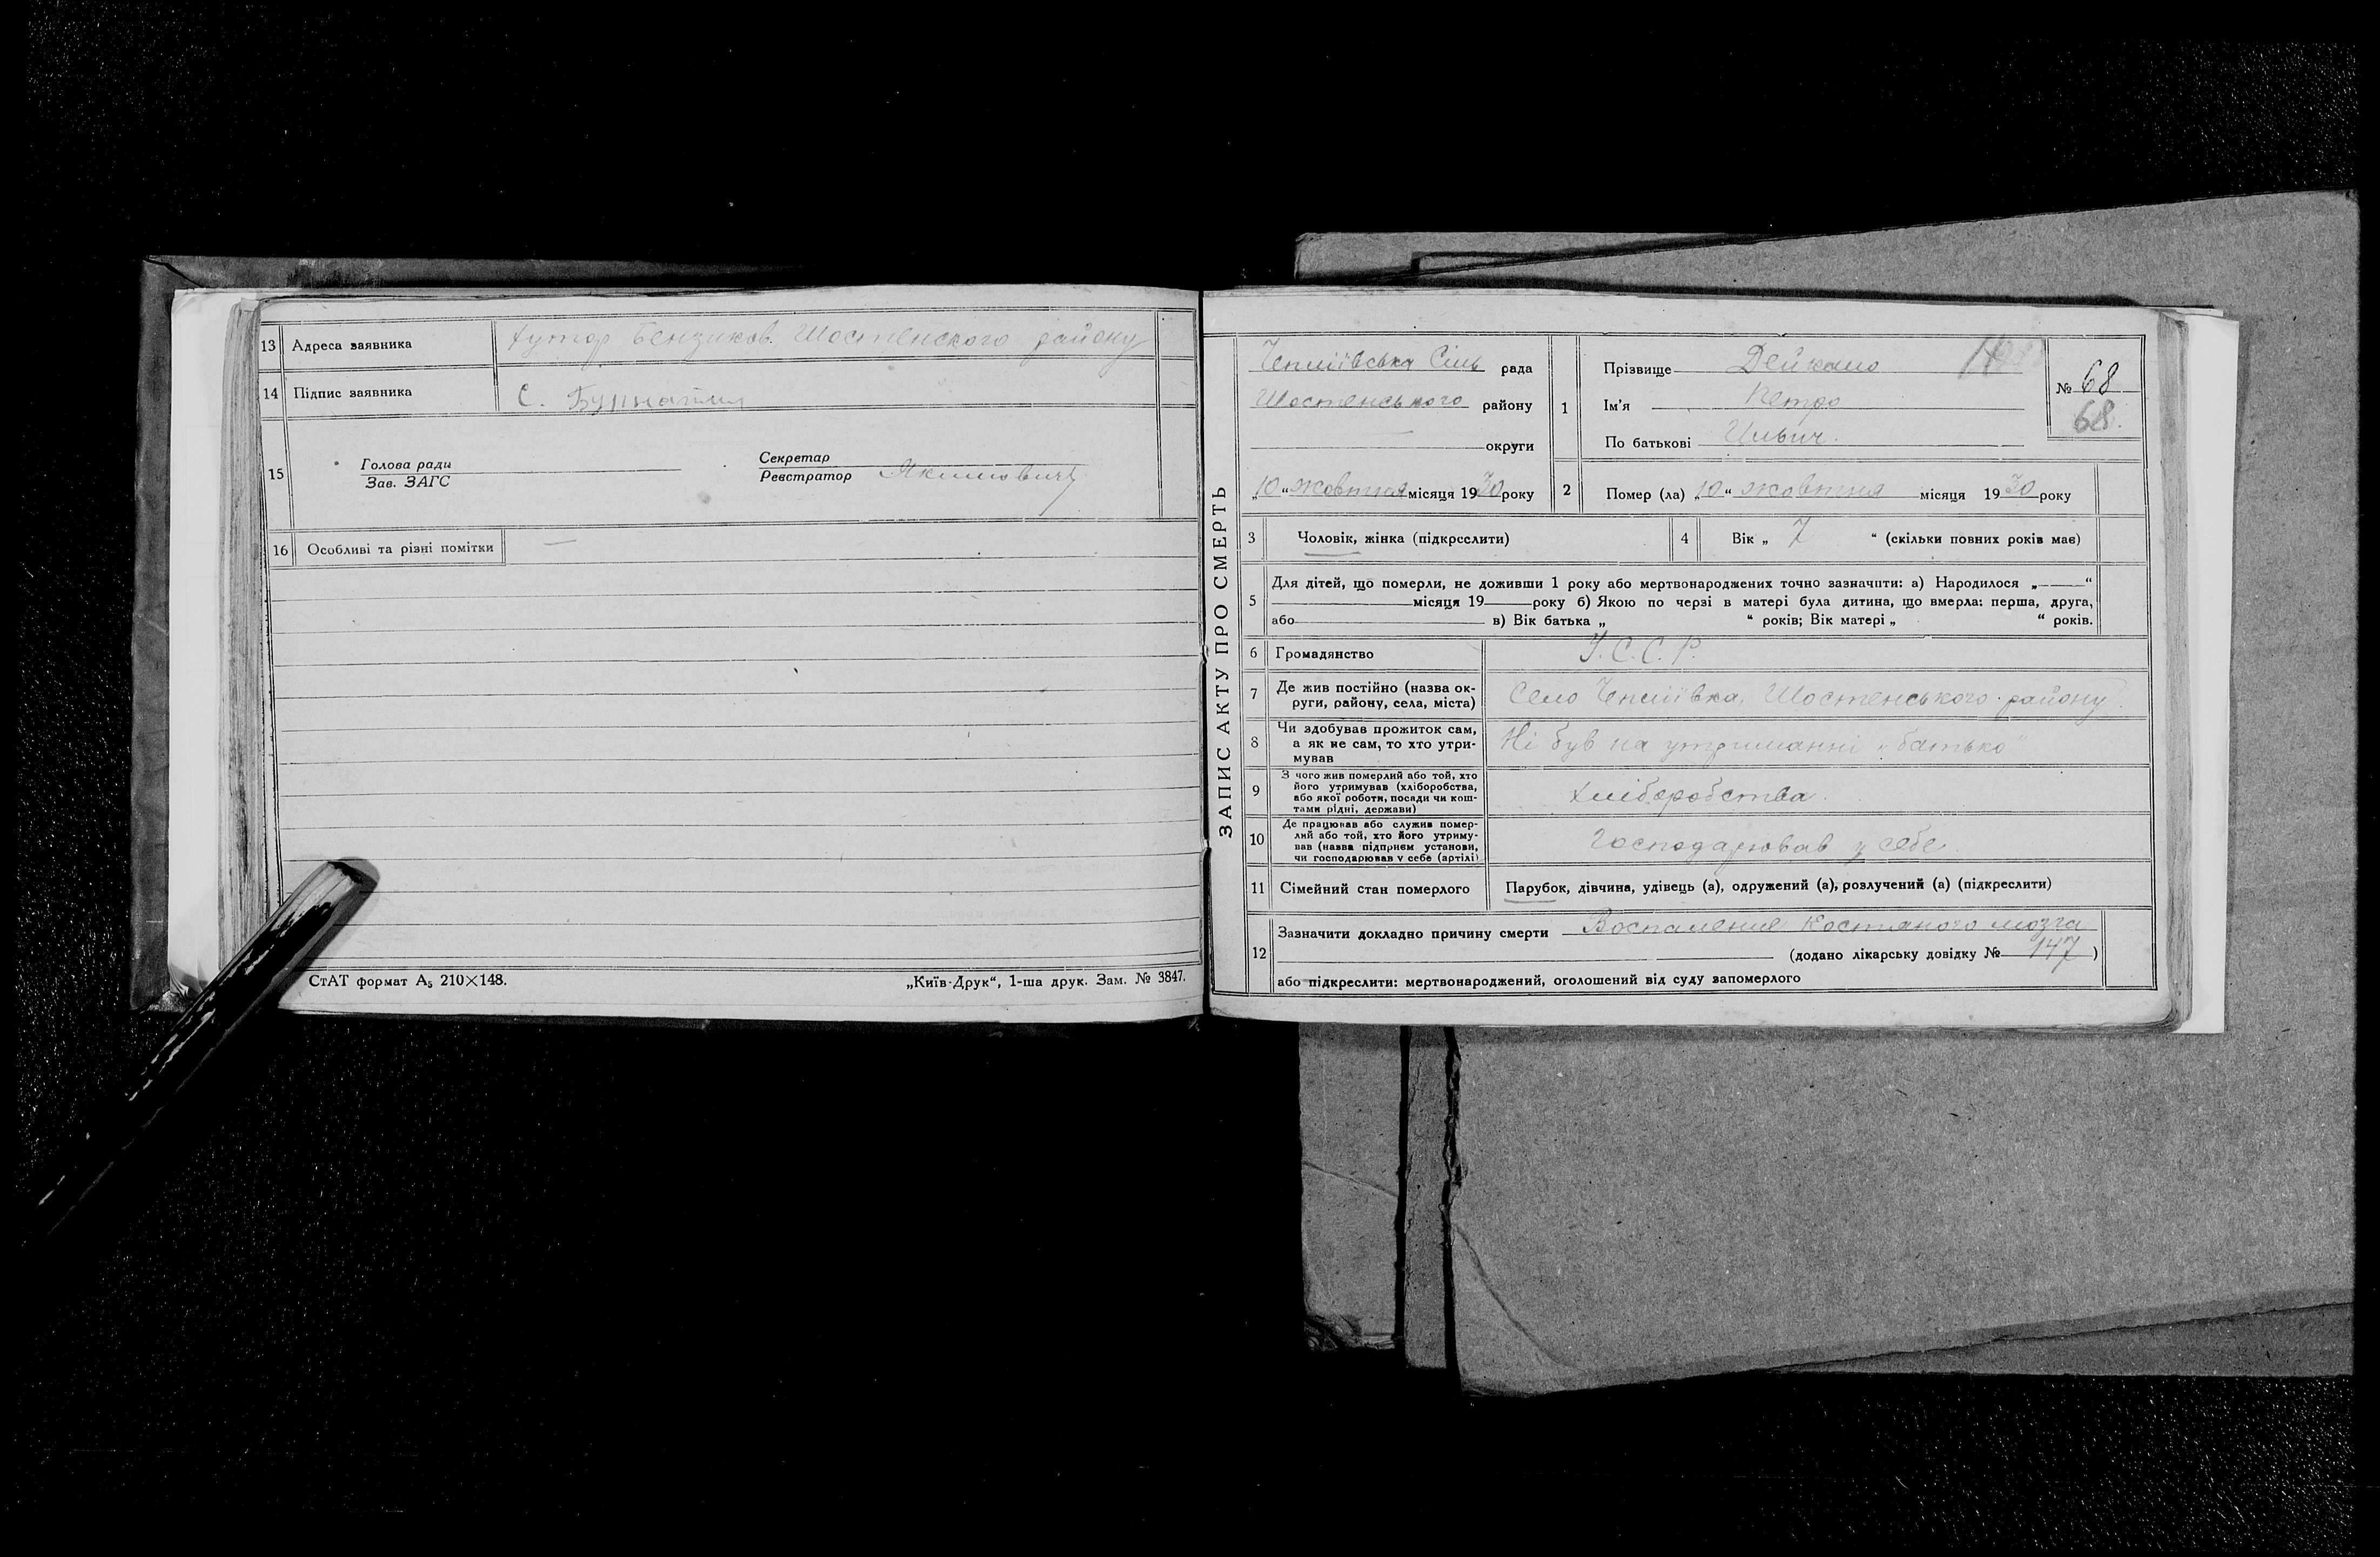 13 Адреса заявника хутор Бензиков. Шостенского району
14 Підпис заявника С.
15 Голова ради Секретар
Зав. ЗАГС Реєстратор Якимович
16 Особливі та різні помітки —
СтАТ формат А₅ 210×148. „Київ-Друк“, 1-ша друк. Зам. № 3847.
ЗАПИС АКТУ ПРО СМЕРТЬ
Чепліївська Сіль рада
Шостенського району
округи
„10“ жовтня місяця 1930 року
1 Прізвище Дейкало
Ім'я Петро
По батькові Ильич.
№ 68
68.
2 Помер (ла) „10“ жовтня місяця 1930 року
3 Чоловік, жінка (підкреслити)
4 Вік „ 7 “ (скільки повних років має)
5 Для дітей, що померли, не доживши 1 року або мертвонароджених точно зазначити: а) Народилося „—“
місяця 19 року б) Якою по черзі в матері була дитина, що вмерла: перша, друга,
або в) Вік батька „ “ років; Вік матері „ “ років.
6 Громадянство У.С.С.Р.
7 Де жив постійно (назва ок-
руги, району, села, міста) Село Чепліївка, Шостенського району
8 Чи здобував прожиток сам,
а як не сам, то хто утри-
мував Ні був на утриманні „батько“
9 З чого жив померлий або той, хто
його утримував (хліборобства,
або якої роботи, посади чи кош-
тами рідні, держави) хліборобства.
10 Де працював або служив помер-
лий або той, хто його утриму-
вав (назва підприєм установи,
чи господарював у себе (артілі) господарював у себе.
11 Сімейний стан померлого Парубок, дівчина, удівець (а), одружений (а), розлучений (а) (підкреслити)
12 Зазначити докладно причину смерти Воспаление костяного мозга
(додано лікарську довідку № 147)
або підкреслити: мертвонароджений, оголошений від суду запомерлого